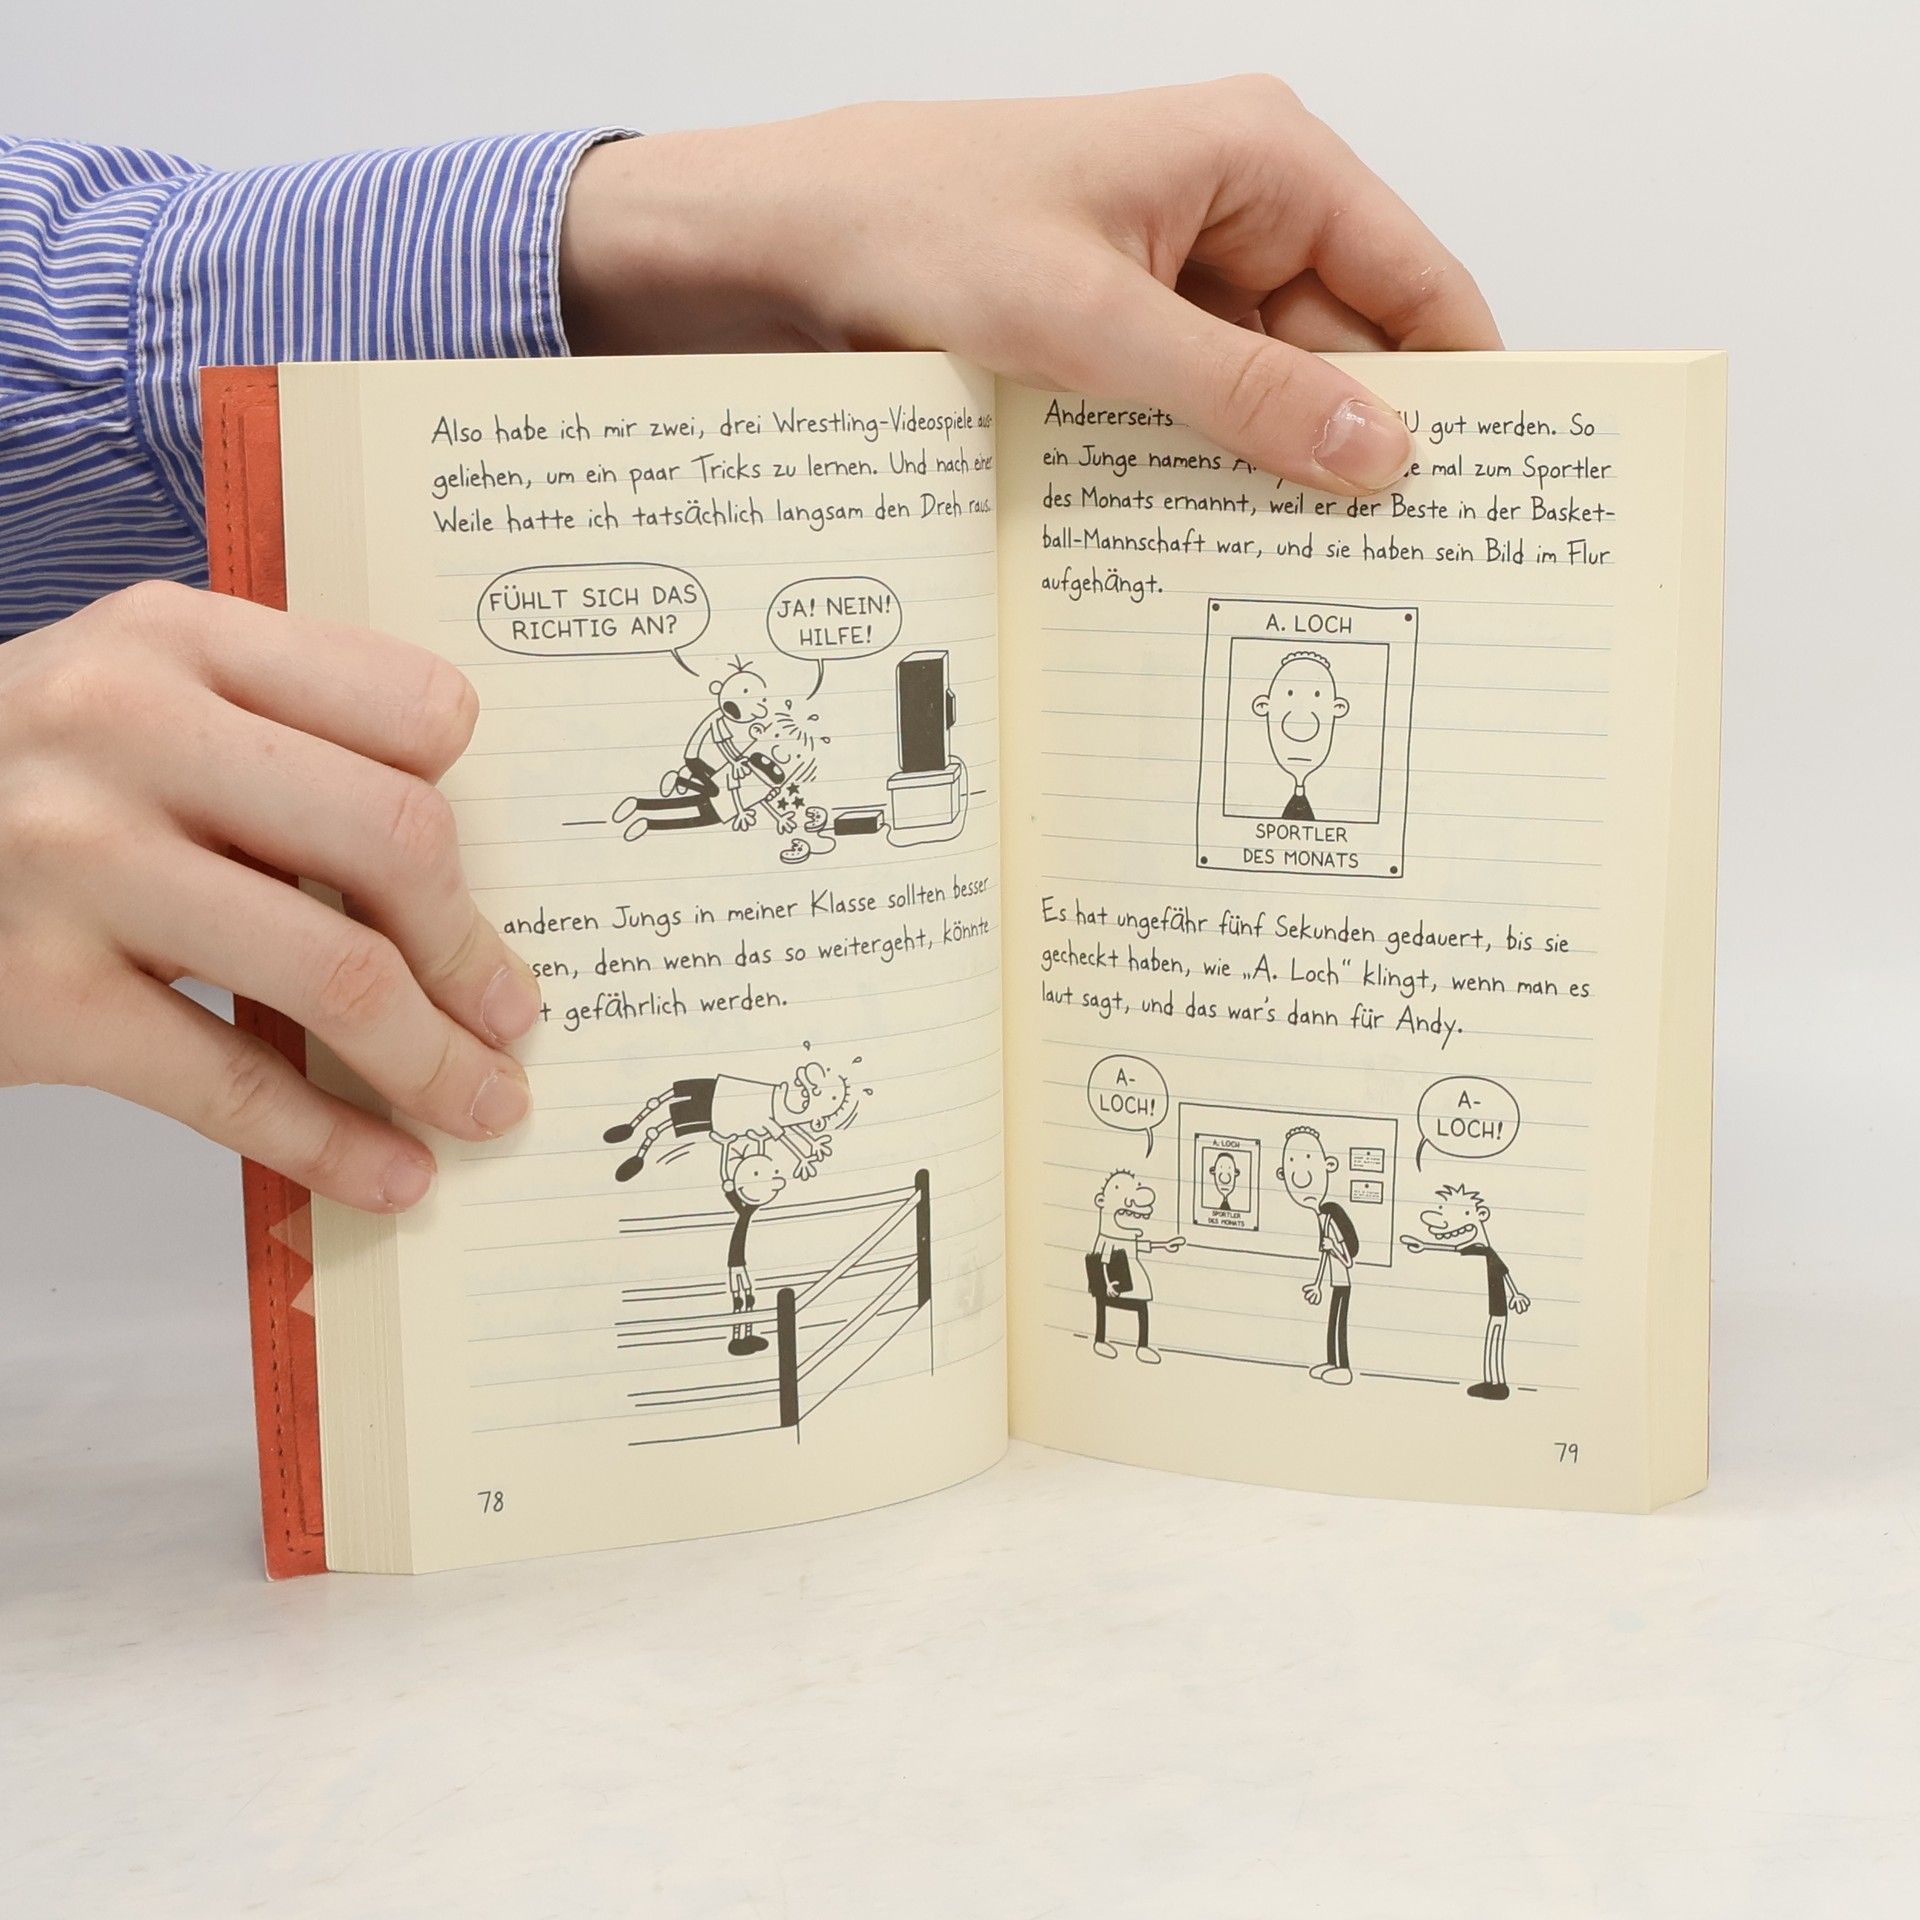 Also habe ich mir zwei, drei Wrestling-Videospiele aus-
geliehen, um ein paar Tricks zu lernen. Und nach einer
Weile hatte ich tatsächlich langsam den Dreh raus.
FÜHLT SICH DAS
RICHTIG AN?
JA! NEIN!
HILFE!
anderen Jungs in meiner Klasse sollten besser
denn wenn das so weitergeht, könnte
gefährlich werden.
78
Andererseits gut werden. So
ein Junge namens mal zum Sportler
des Monats ernannt, weil er der Beste in der Basket-
ball-Mannschaft war, und sie haben sein Bild im Flur
aufgehängt.
A. LOCH
SPORTLER
DES MONATS
Es hat ungefähr fünf Sekunden gedauert, bis sie
gecheckt haben, wie „A. Loch“ klingt, wenn man es
laut sagt, und das war's dann für Andy.
A-
LOCH!
A-
LOCH!
A. LOCH
SPORTLER
DES MONATS
79